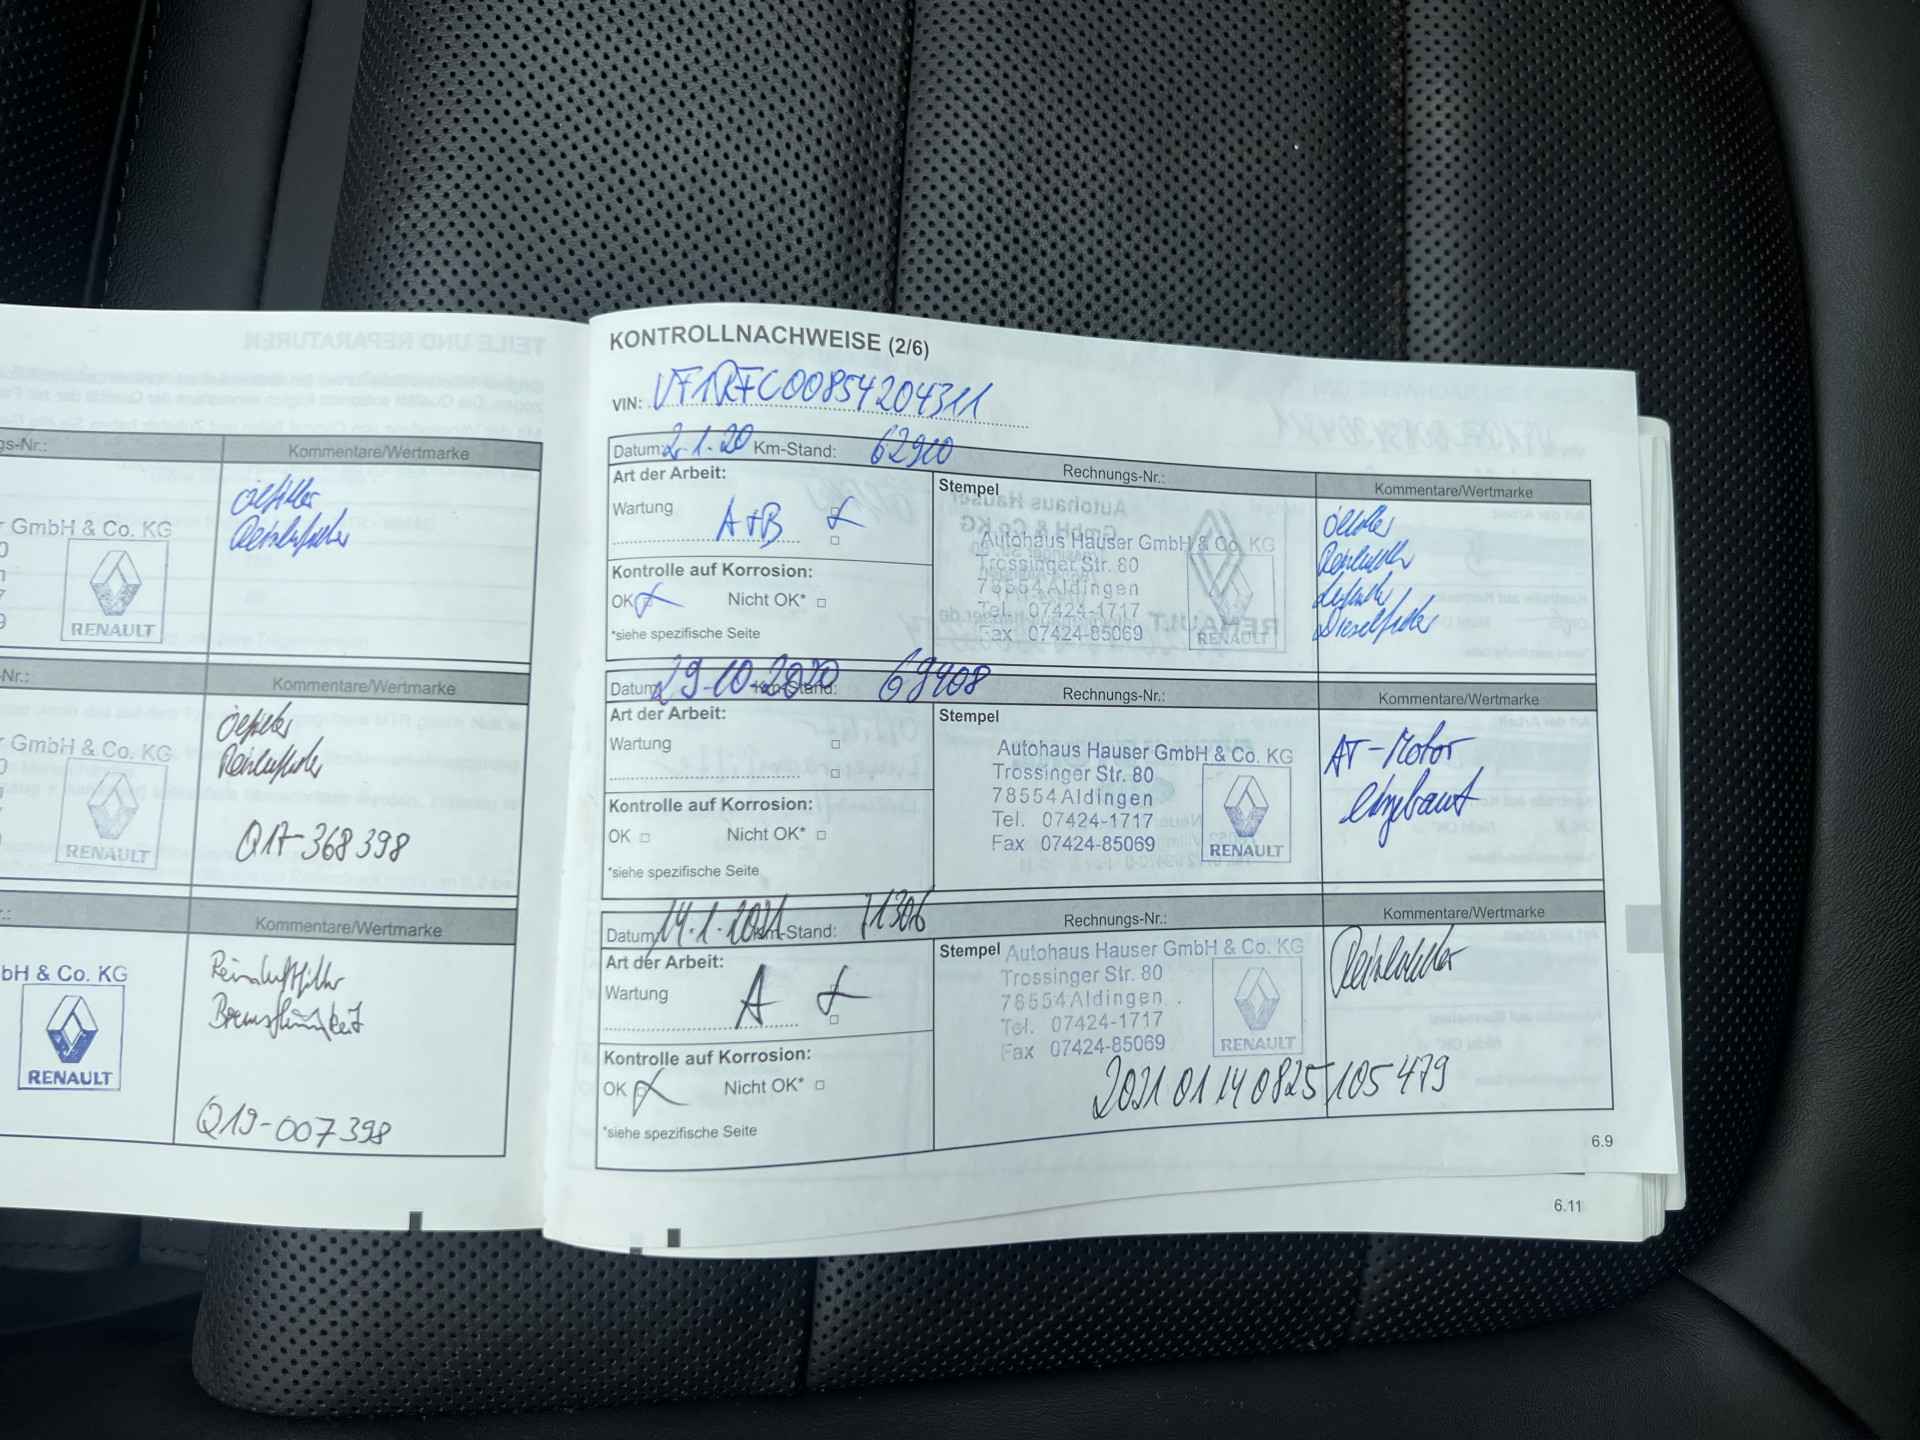 gs-Nr.:
Kommentare/Wertmarke
Ölfilter
Reinluftfilter
r GmbH & Co. KG
RENAULT
Nr.:
Kommentare/Wertmarke
Ölfilter
Reinluftfilter
r GmbH & Co. KG
RENAULT
Q17-368398
Kommentare/Wertmarke
Reinluftfilter
Bremsflüssigkeit
bH & Co. KG
RENAULT
Q19-007398
KONTROLLNACHWEISE (2/6)
VIN: VF1RFC00854204311
Datum: 2.1.20 Km-Stand: 62900 Rechnungs-Nr.: Kommentare/Wertmarke
Art der Arbeit:
Wartung A+B
Kontrolle auf Korrosion:
OK Nicht OK*
*siehe spezifische Seite
Stempel
Autohaus Hauser GmbH & Co. KG
Trossinger Str. 80
78554 Aldingen
Tel. 07424-1717
Fax 07424-85069
RENAULT
Ölfilter
Reinluftfilter
Luftfilter
Dieselfilter
Datum: 29-10-2020 Km-Stand: 69408 Rechnungs-Nr.: Kommentare/Wertmarke
Art der Arbeit:
Wartung
Kontrolle auf Korrosion:
OK Nicht OK*
*siehe spezifische Seite
Stempel
Autohaus Hauser GmbH & Co. KG
Trossinger Str. 80
78554 Aldingen
Tel. 07424-1717
Fax 07424-85069
RENAULT
AT-Motor
eingebaut
Datum: 14.1.2021 Km-Stand: 71306 Rechnungs-Nr.: Kommentare/Wertmarke
Art der Arbeit:
Wartung A
Kontrolle auf Korrosion:
OK Nicht OK*
*siehe spezifische Seite
Stempel
Autohaus Hauser GmbH & Co. KG
Trossinger Str. 80
78554 Aldingen
Tel. 07424-1717
Fax 07424-85069
RENAULT
Reinluftfilter
202101140825105479
6.9
6.11